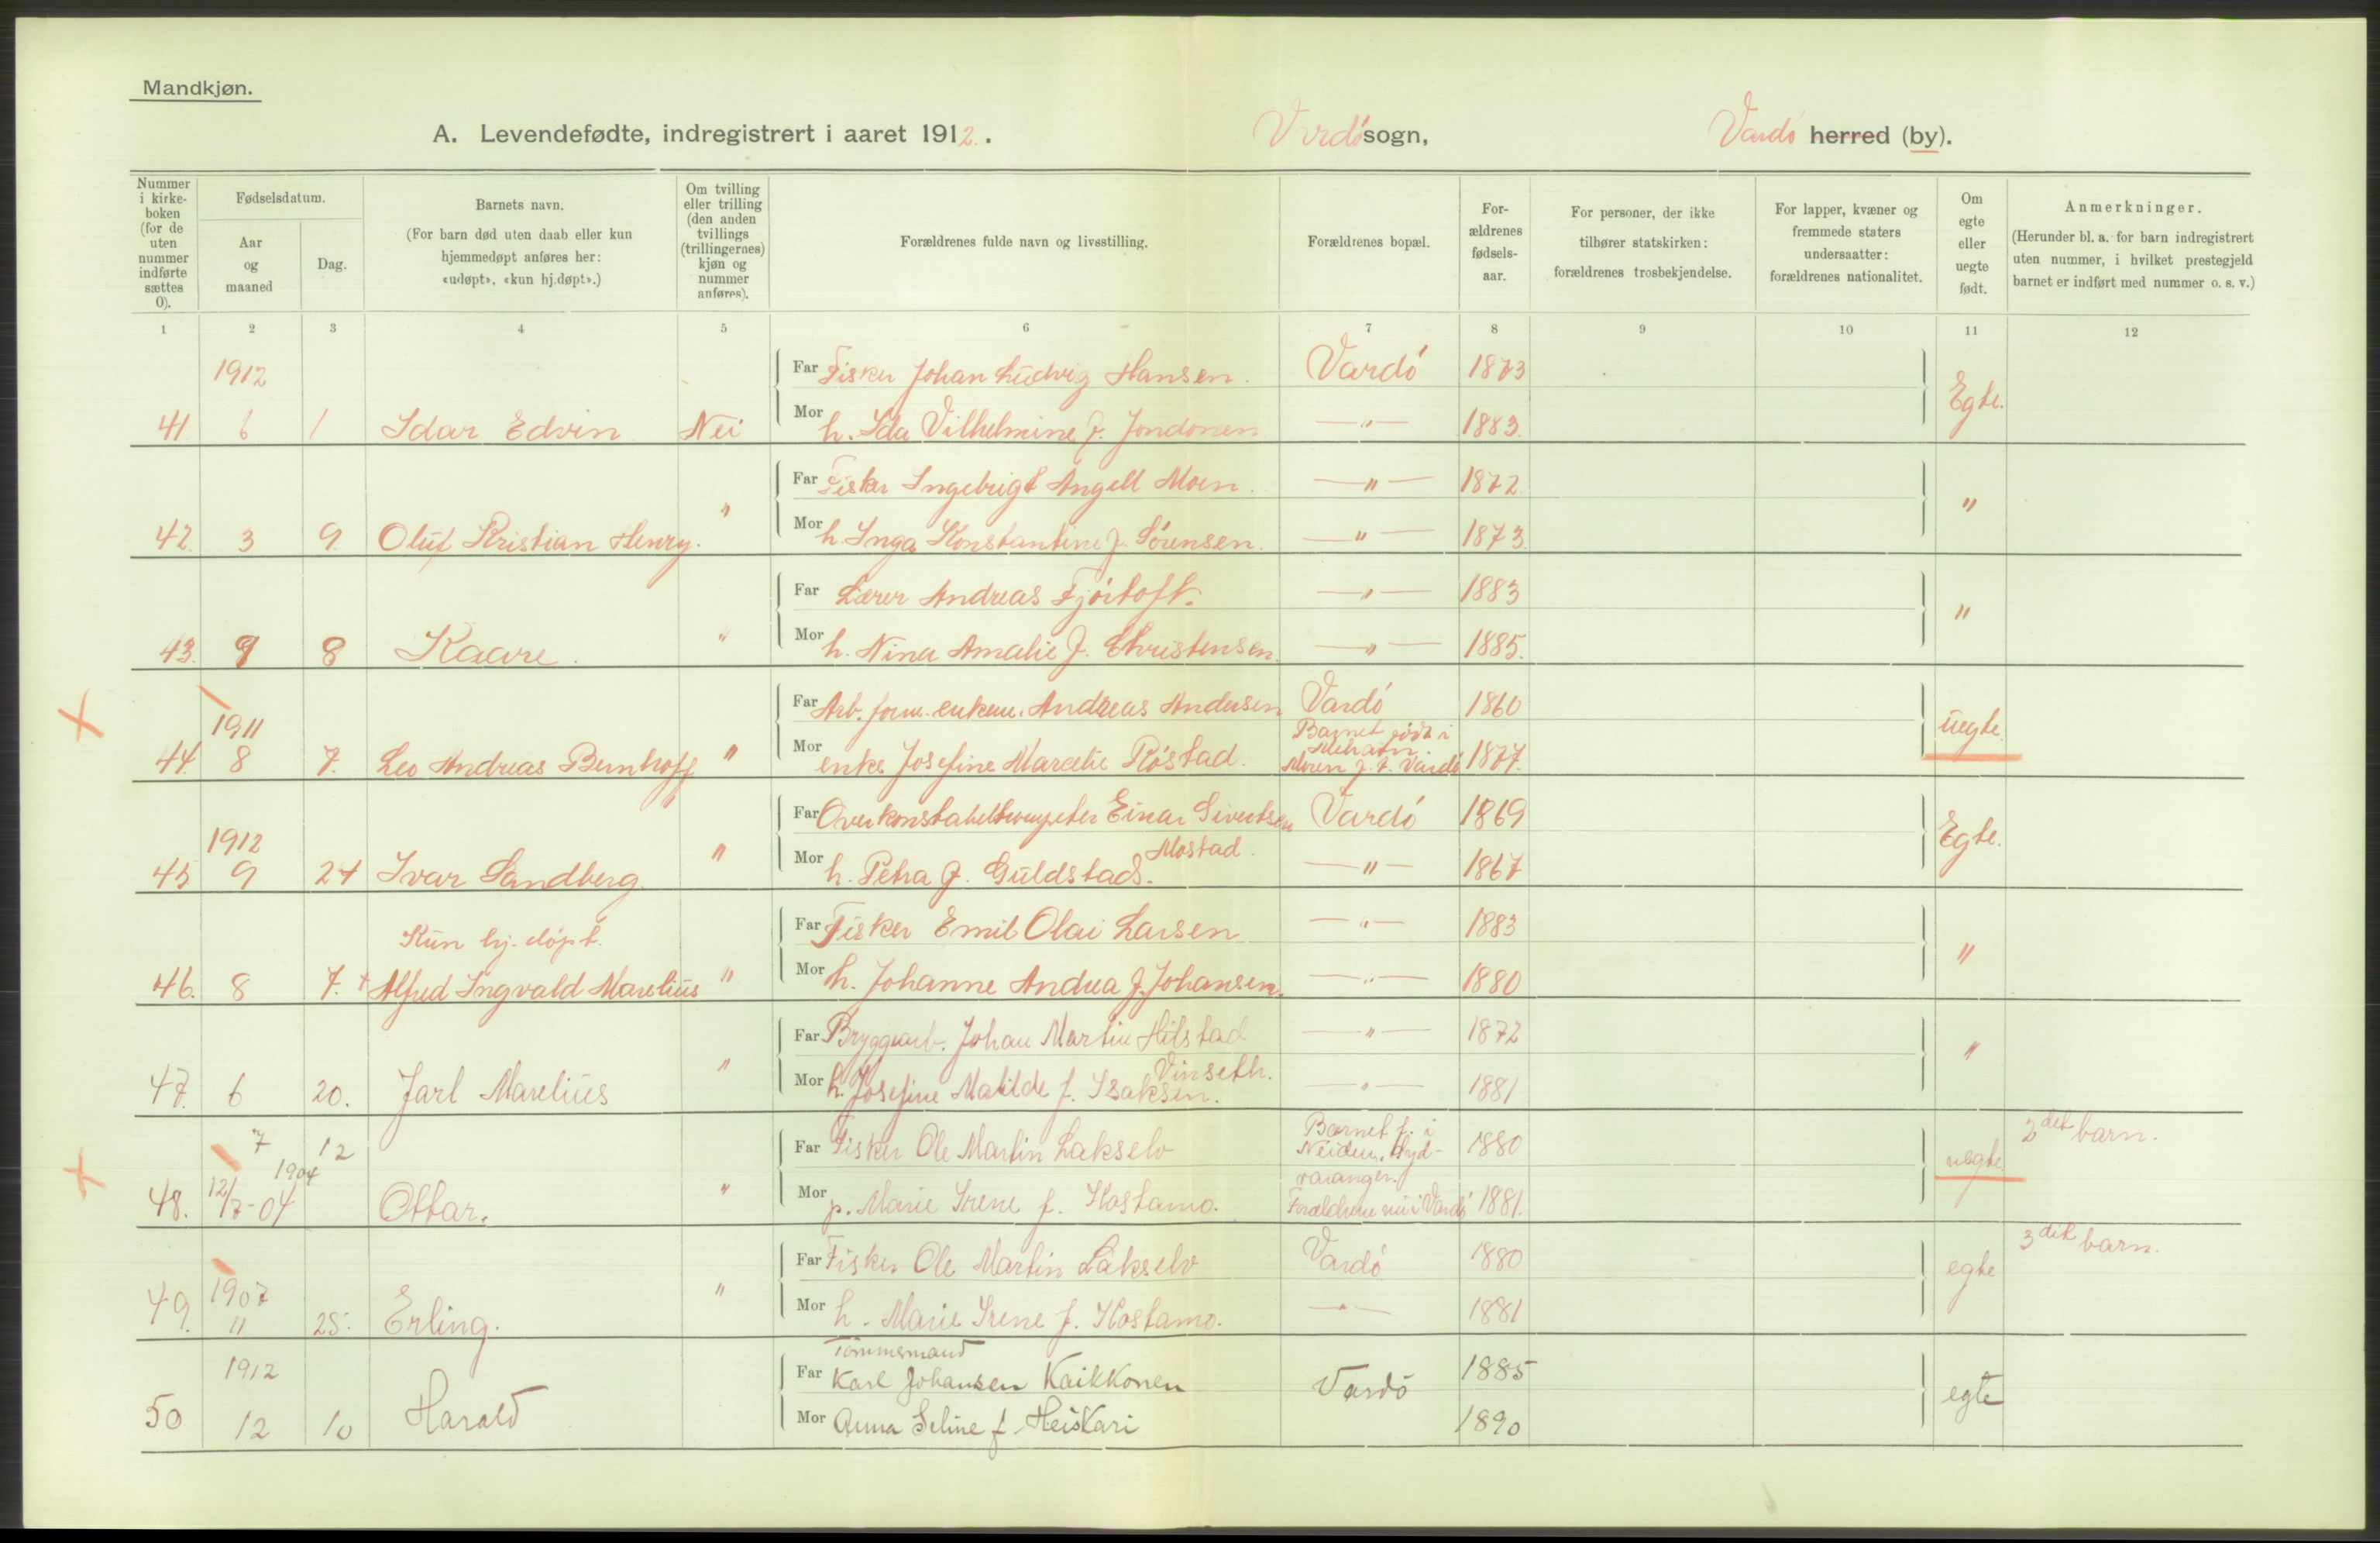 Mandkjøn.
A. Levendefødte, indregistrert i aaret 1912. Vardø sogn, Vardø herred (by).
Nummer i kirke-boken (for de uten nummer indførte sættes 0).
Fødselsdatum.
Aar og maaned
Dag.
Barnets navn.
(For barn død uten daab eller kun hjemmedøpt anføres her: «udøpt», «kun hj.døpt».)
Om tvilling eller trilling (den anden tvillings (trillingernes) kjøn og nummer anføres).
Forældrenes fulde navn og livsstilling.
Forældrenes bopæl.
For-ældrenes fødsels-aar.
For personer, der ikke tilhører statskirken: forældrenes trosbekjendelse.
For lapper, kvæner og fremmede staters undersaatter: forældrenes nationalitet.
Om egte eller uegte født.
Anmerkninger.
(Herunder bl. a. for barn indregistrert uten nummer, i hvilket prestegjeld barnet er indført med nummer o. s. v.)
1 2 3 4 5 6 7 8 9 10 11 12
1912 Far Fisker Johan Ludvig Hansen. Vardø 1873 Egte.
41 6 1 Idar Edvin Nei Mor h. Ida Vilhelmine f. Jondonen —"— 1883.
Far Fisker Ingebrigt Angell Moen. —"— 1872. "
42. 3 9. Oluf Kristian Henry. " Mor h. Inga Konstantine f. Sørensen. —"— 1873.
Far Lærer Andreas Fjørtoft. —"— 1883 "
43. 9 8 Kaare. " Mor h. Nina Amalie f. Christensen. —"— 1885.
X 1911 Far Arb. form. enkem. Andreas Andersen Vardø 1860 uegte.
44. 8 7. Leo Andreas Bernhoff " Mor enke Josefine Marelie Røstad. Barnet født i Mehavn. Moren f. t. Vardø 1877.
1912 Far Overkonstabeltrompeter Einar Sivertsen Mostad. Vardø 1869 Egte.
45 9 27 Ivar Sandberg. " Mor h. Petra f. Guldstad. —"— 1867
Kun hj. døpt. Far Fisker Emil Olai Larsen —"— 1883 "
46. 8 7. + Alfred Ingvald Marelius " Mor h. Johanne Andrea f. Johansen. —"— 1880
Far Bryggearb. Johan Martin Hilstad —"— 1872 "
Vinseth.
47. 6 20. Jarl Marelius " Mor h. Josefine Matilde f. Isaksen. —"— 1881
X 7 12 1904 Far Fisker Ole Martin Lakselv Barnet f. i Neiden, Syd-varanger. 1880 uegte 2det barn.
48. 12/7-04 Ottar. " Mor p. Marie Irene f. Kostamo. Forældrene nu i Vardø 1881.
1907 Far Fisker Ole Martin Lakselv Vardø 1880 egte 3die barn.
49. 11 25. Erling. " Mor h. Marie Irene f. Kostamo. —"— 1881
Tømmermand
1912 Far Karl Johansen Kaikkonen Vardø 1885 egte
50 12 10 Harald Mor Anna Seline f. Heiskari 1890